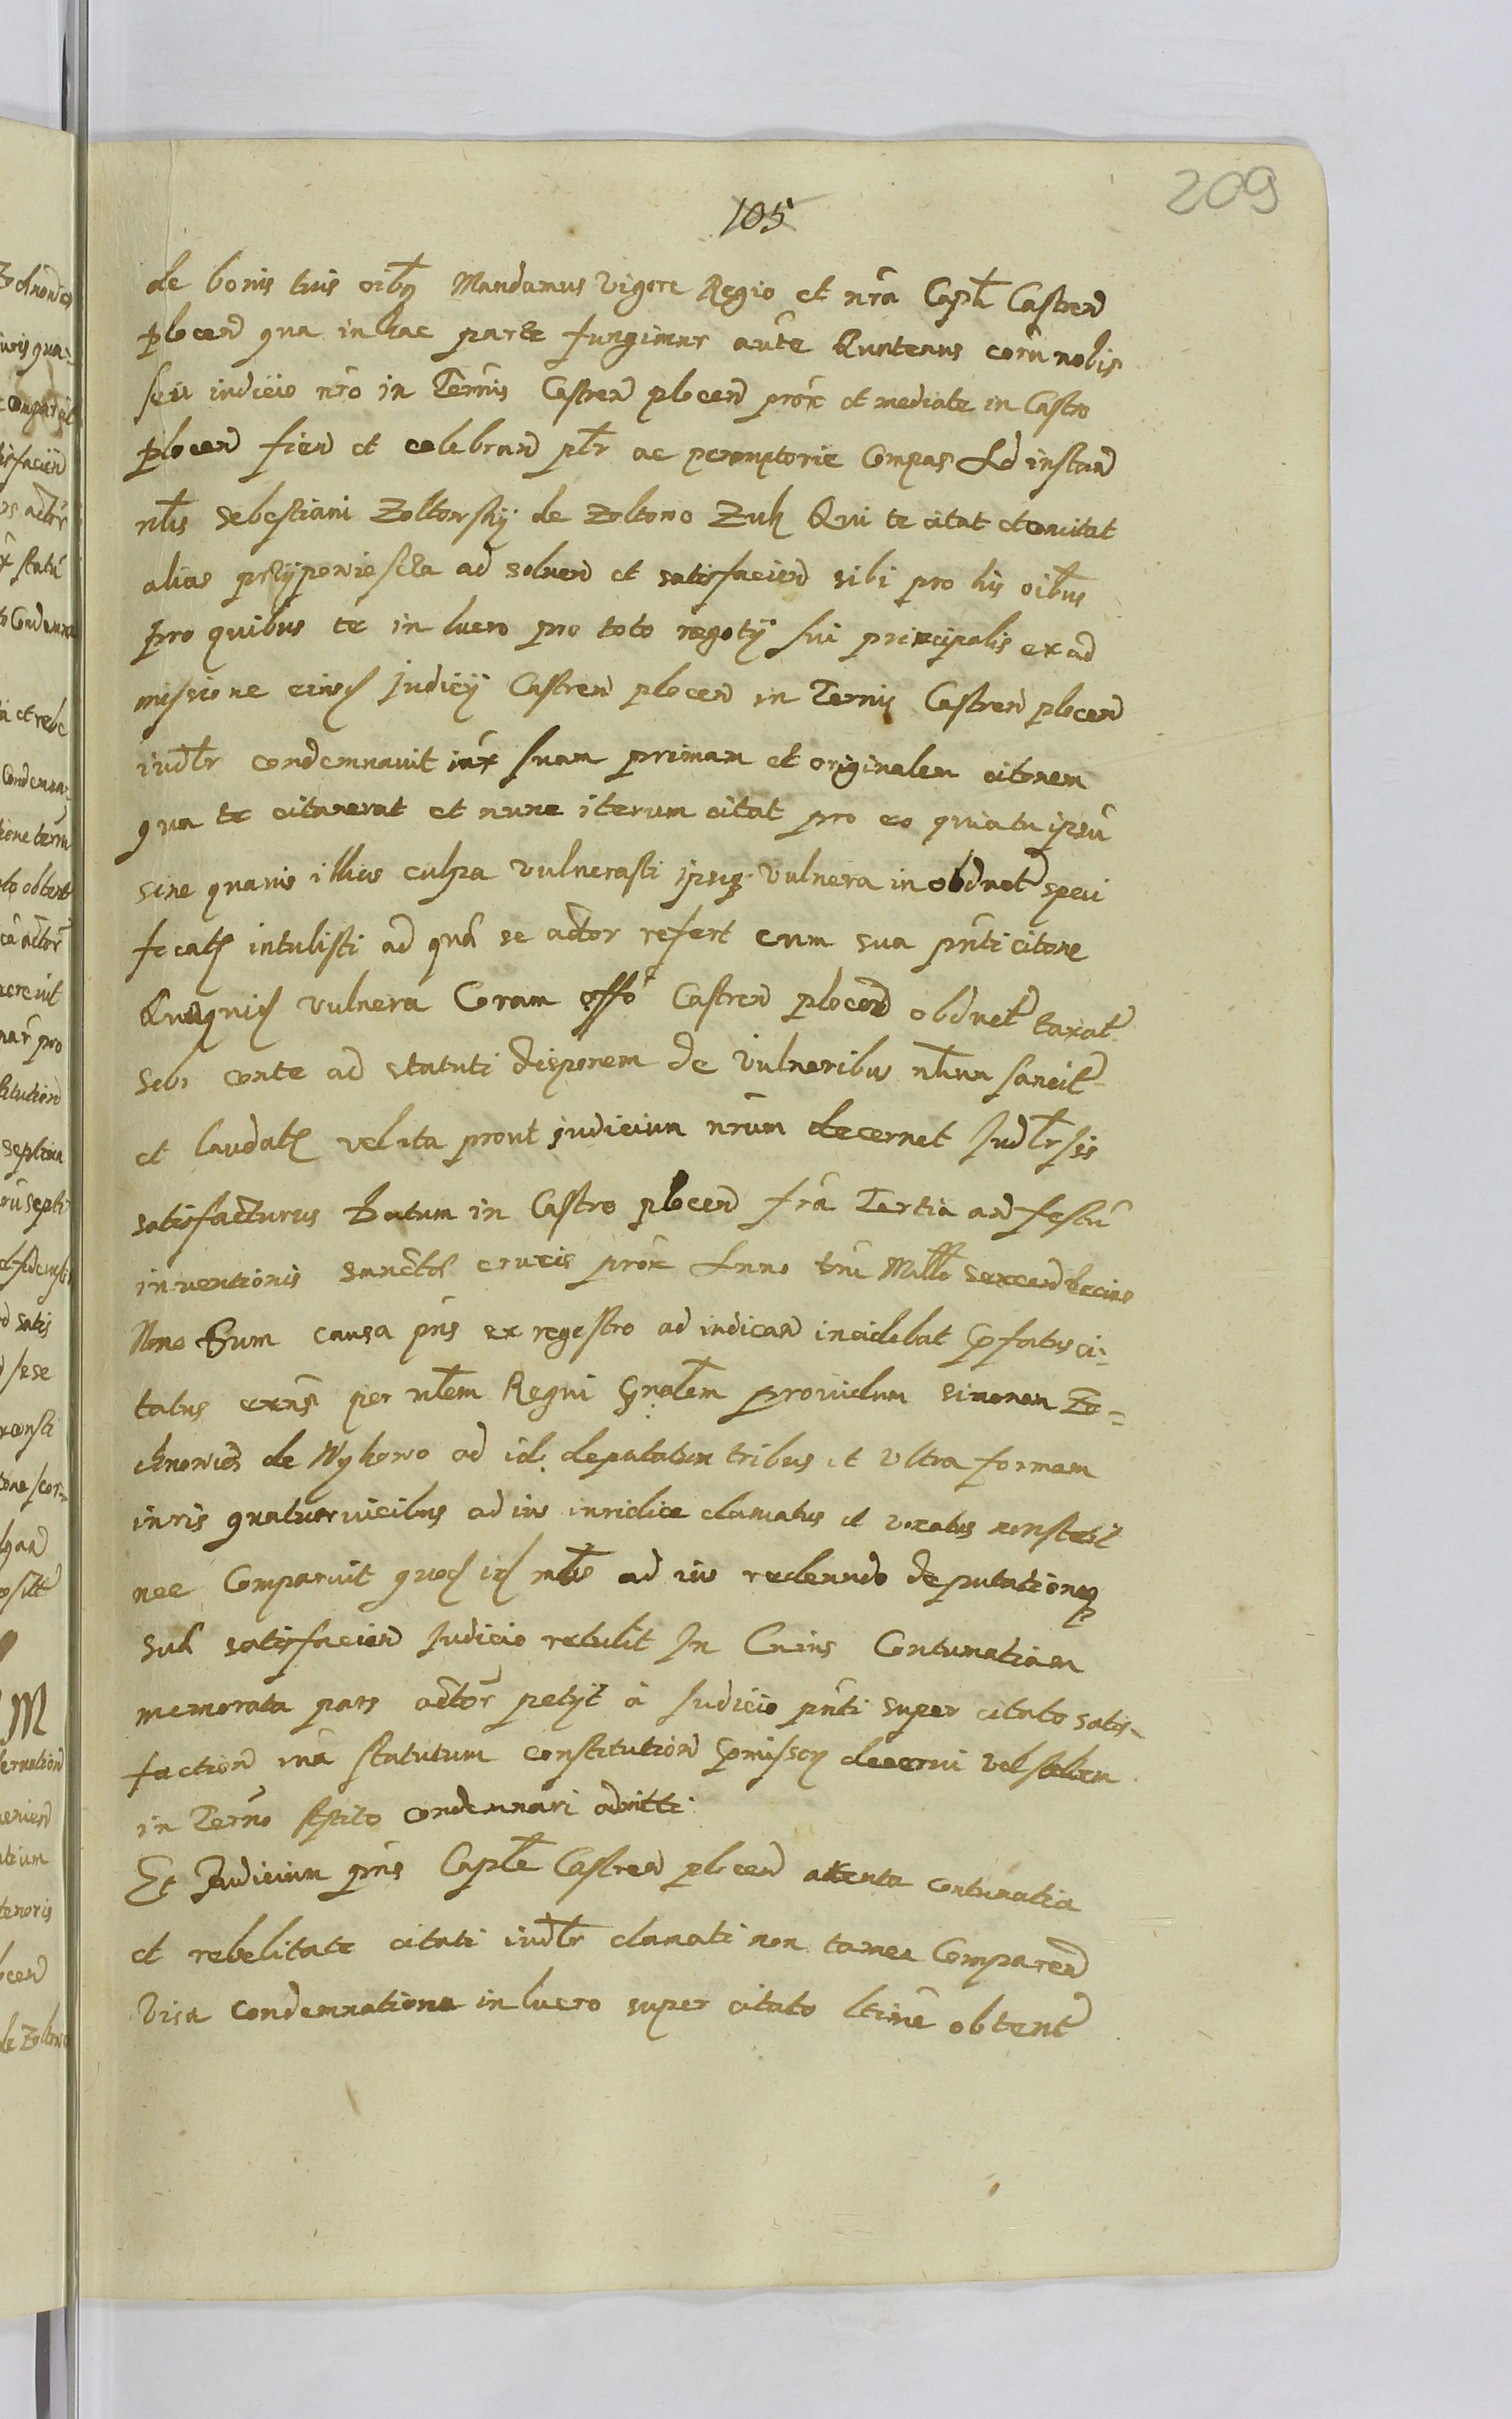 209
105
de bonis tuis oibq Mandamus Vigore Regio et nrã Caplt Castren
plocen qua in hac parte fungimur aûte Quatenus corã nobis
seu iudicio nro in Termis Castren plocen prox et mediate in Castro
plocen fien et celebran plr ac peremptorie Compas Ad instan
nlis Sebestiani Zoltowskÿ de Zoltowo Zuk Qui te citat
alias ad soluen et satisfacien sibi pro his oibus
pro quibus te in lucro pro toto negotÿ sui principalis ex ad
missione eiusd Judicÿ Castren plocen in Termis Castren plocen
iudlr condemnauit iux suam primam et originalem citonem
qua te citauerat et nunc iterum citat pro eo quia tu ipsũ
sine quauis illius culpa vulnerasti ipsiq vulnera in obduct speci
ficat intulisti ad quã se actor refert cum sua pnti citone
vulnera Coram offo Castren plocen obduct taxat
Sibi conte ad statuti disponem de Vulneribus nlium sancit
et laudat vel ita prout judicium nrum decernet Judlr sis
satisfacturus Datum in Castro plocen fra Tertia an festũ
inventionis sanctae crucis prox Anno Dni Millo sexcen Decimo
Nono Dum causa pns ex regestro ad iudican incidebat pfatus ci-
tatus per nlem Regni Gnalem prouidum simonem Zo-
chnowicz de Wykowo ad id deputatum tribus et Vltra formam
iuris quatuor vicibus ad ius iuridice clamatus et vocatus non stetit
nec Comparuit quod id mlis ad ius reddendo deputationq
sua satisfacien Judicio retulit In Cuius Contumatiam
memorata pars actor petÿt à Judicio pnti super citato satis-
faction iuxa statutum constitution pmissor decerni vel saltem
in Termo condemnari admitti
Et Judicium pns Caple Castren plocen attenta contumatia
et rebelitate citati iudlr clamati non tamen Comparen
Visa condemnatione in lucro super citato ltime obtent